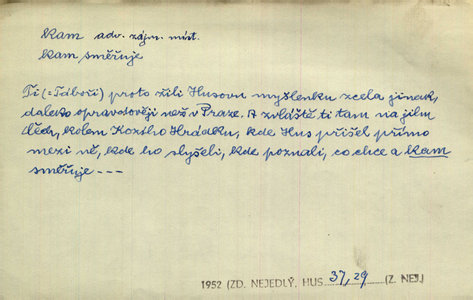 kam adv. zájm. míst.
kam směřuje
Ti (=Táboři) proto žili Husovu myšlenku zcela jinak,
daleko opravdověji než v Praze. A zvláště ti tam na jihu
kolem Kozího Hrádku, kde Hus přišel přímo
mezi ně, kde ho slyšeli, kde poznali, co chce a kam
směřuje ---
1952 (ZD. NEJEDLÝ, HUS 37,29 (Z. NEJ.)